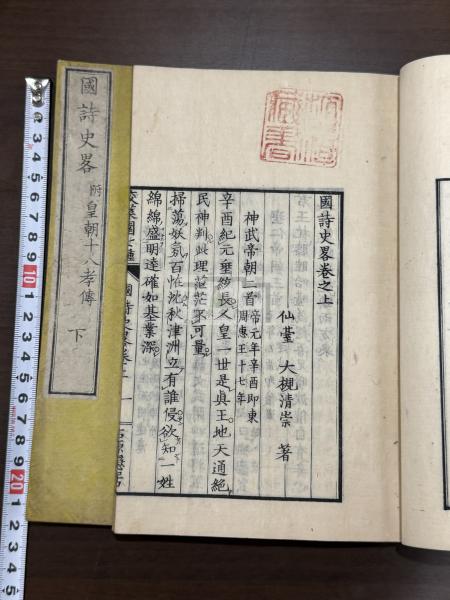 國詩史畧 附 皇朝十八孝傳 下
國詩史畧卷之上
仙臺 大槻清崇 著
神武帝朝二首 帝元年辛酉即東
周惠王十七年
辛酉紀元垂緒長人皇一世是眞王地天通絕
民神判此理茫茫不可量
掃蕩妖氛百怪沈秋津洲立有誰侵欲知一姓
綿綿盛明達確如基業深
國詩史畧卷上 一
藏書
10
20